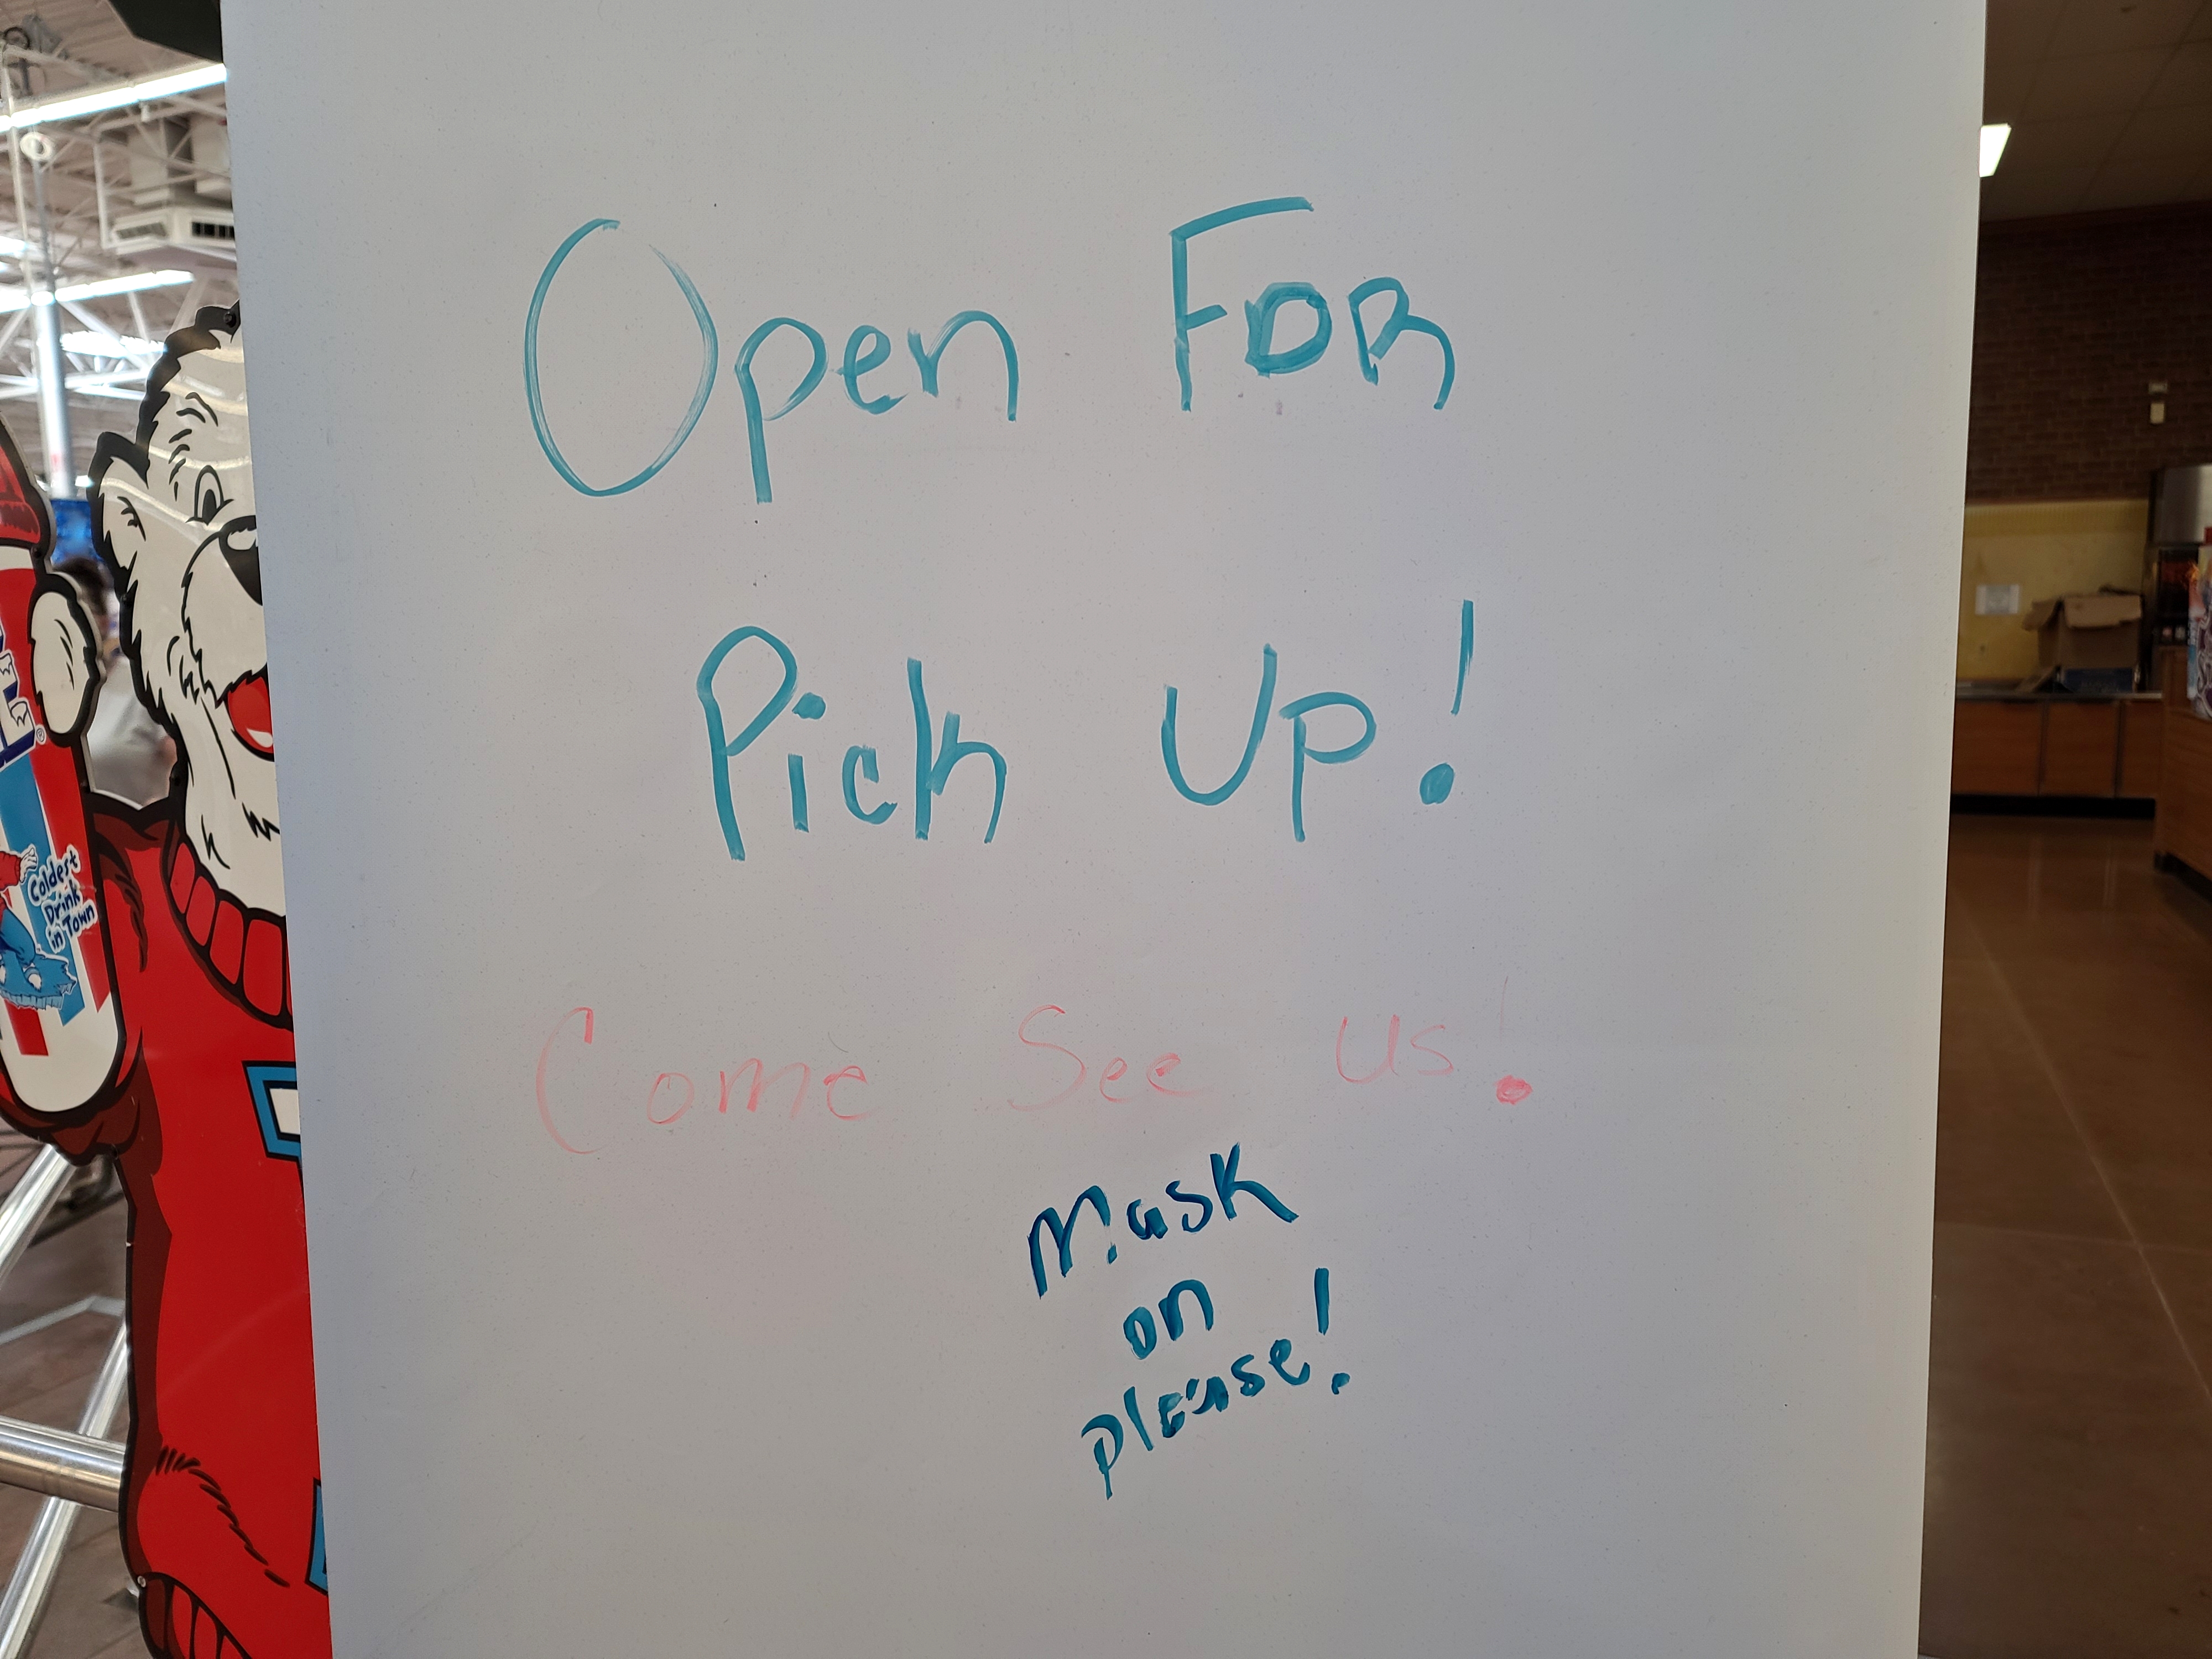 Open FOR
Pick UP!
Come See Us!
Mask
on
please!
Coldest
Drink
in Town